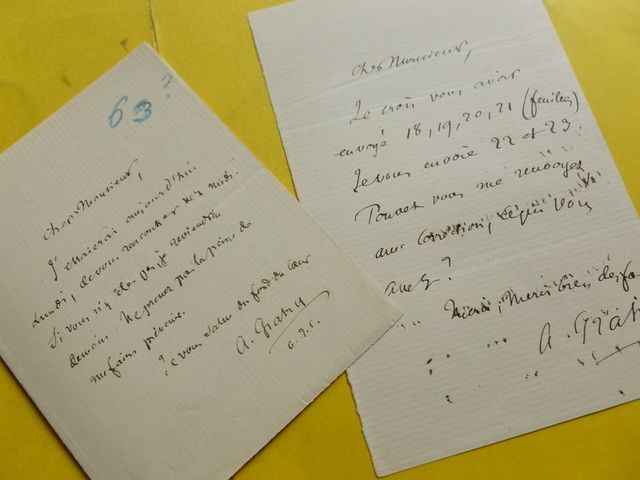 63?
Cher Monsieur,
J'essaierai aujourd'hui
lundi, de vous rencontrer vers midi.
Si vous n'y êtes pas je reviendrai
demain. Ne prenez pas la peine de
me faire prévenir.
Je vous salue du fond du cœur
A. Gratry
Cher Monsieur,
Je crois vous avoir
envoyé 18, 19, 20, 21 (feuilles)
Je vous envoie 22 et 23.
Pouvez vous me renvoyer
avec correction, ce que vous
avez?
Merci, merci bien des fo
A. Grat